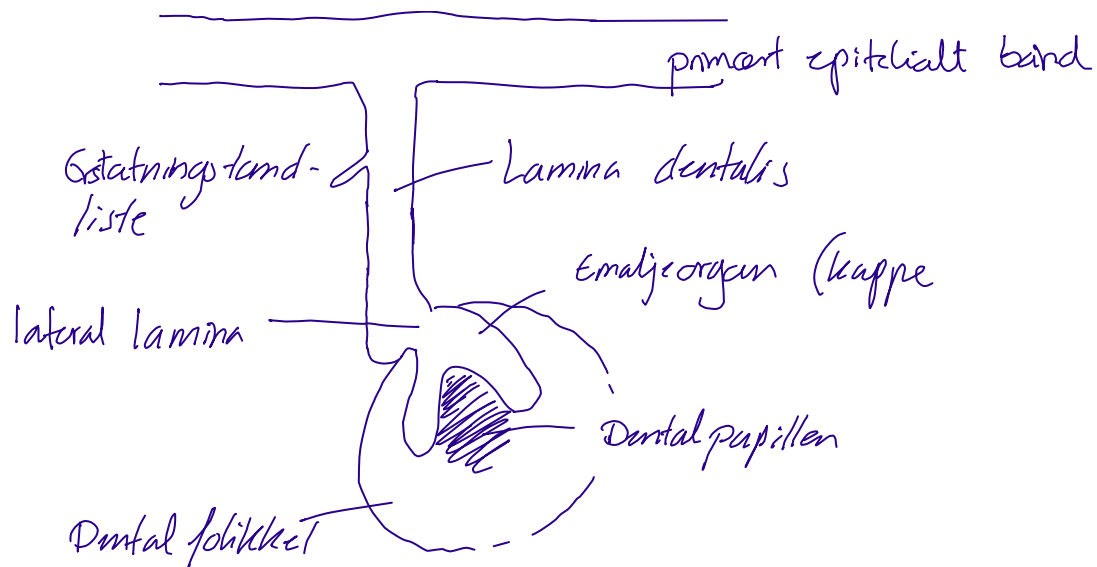 primært epitelialt bånd
Erstatningstand-
liste
Lamina dentalis
Emaljeorgan (kappe
lateral lamina
Dentalpapillen
Dental folikkel